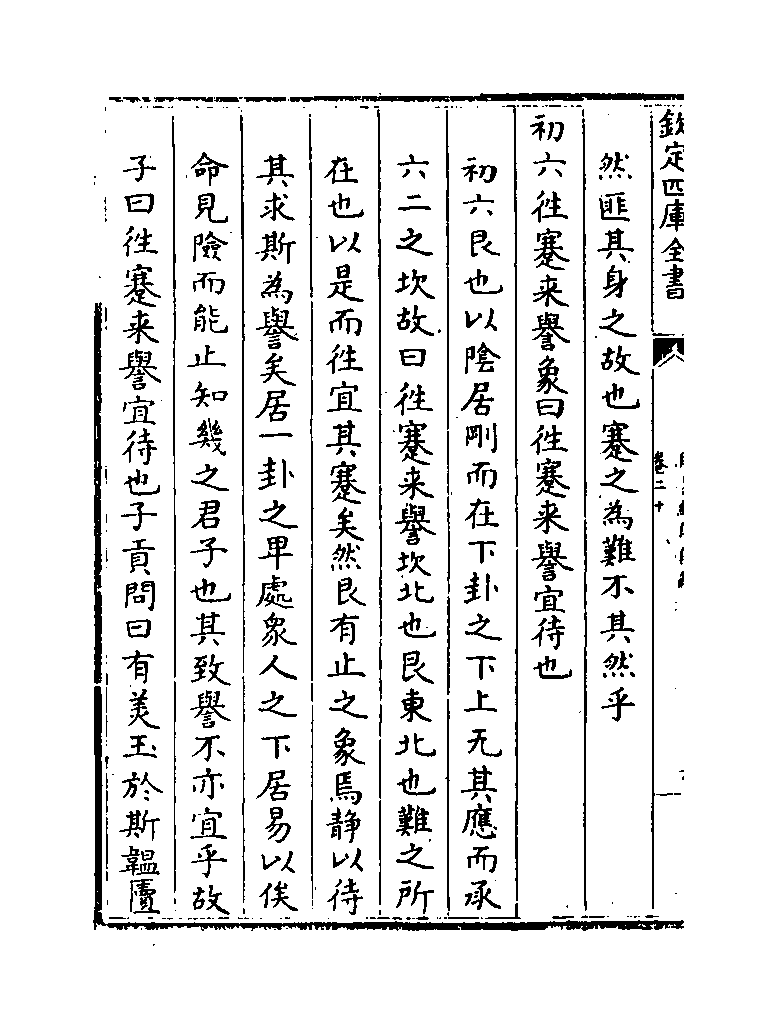 欽定四庫全書
卷二十
然匪其身之故也蹇之為難不其然乎
初六徃蹇来譽象曰徃蹇来譽宜待也
初六艮也以陰居剛而在下卦之下上无其應而承
六二之坎故曰徃蹇来譽坎北也艮東北也難之所
在也以是而徃宜其蹇矣然艮有止之象焉静以待
其求斯為譽矣居一卦之卑處衆人之下居易以俟
命見險而能止知幾之君子也其致譽不亦宜乎故
子曰徃蹇来譽宜待也子貢問曰有美玉於斯韞匵